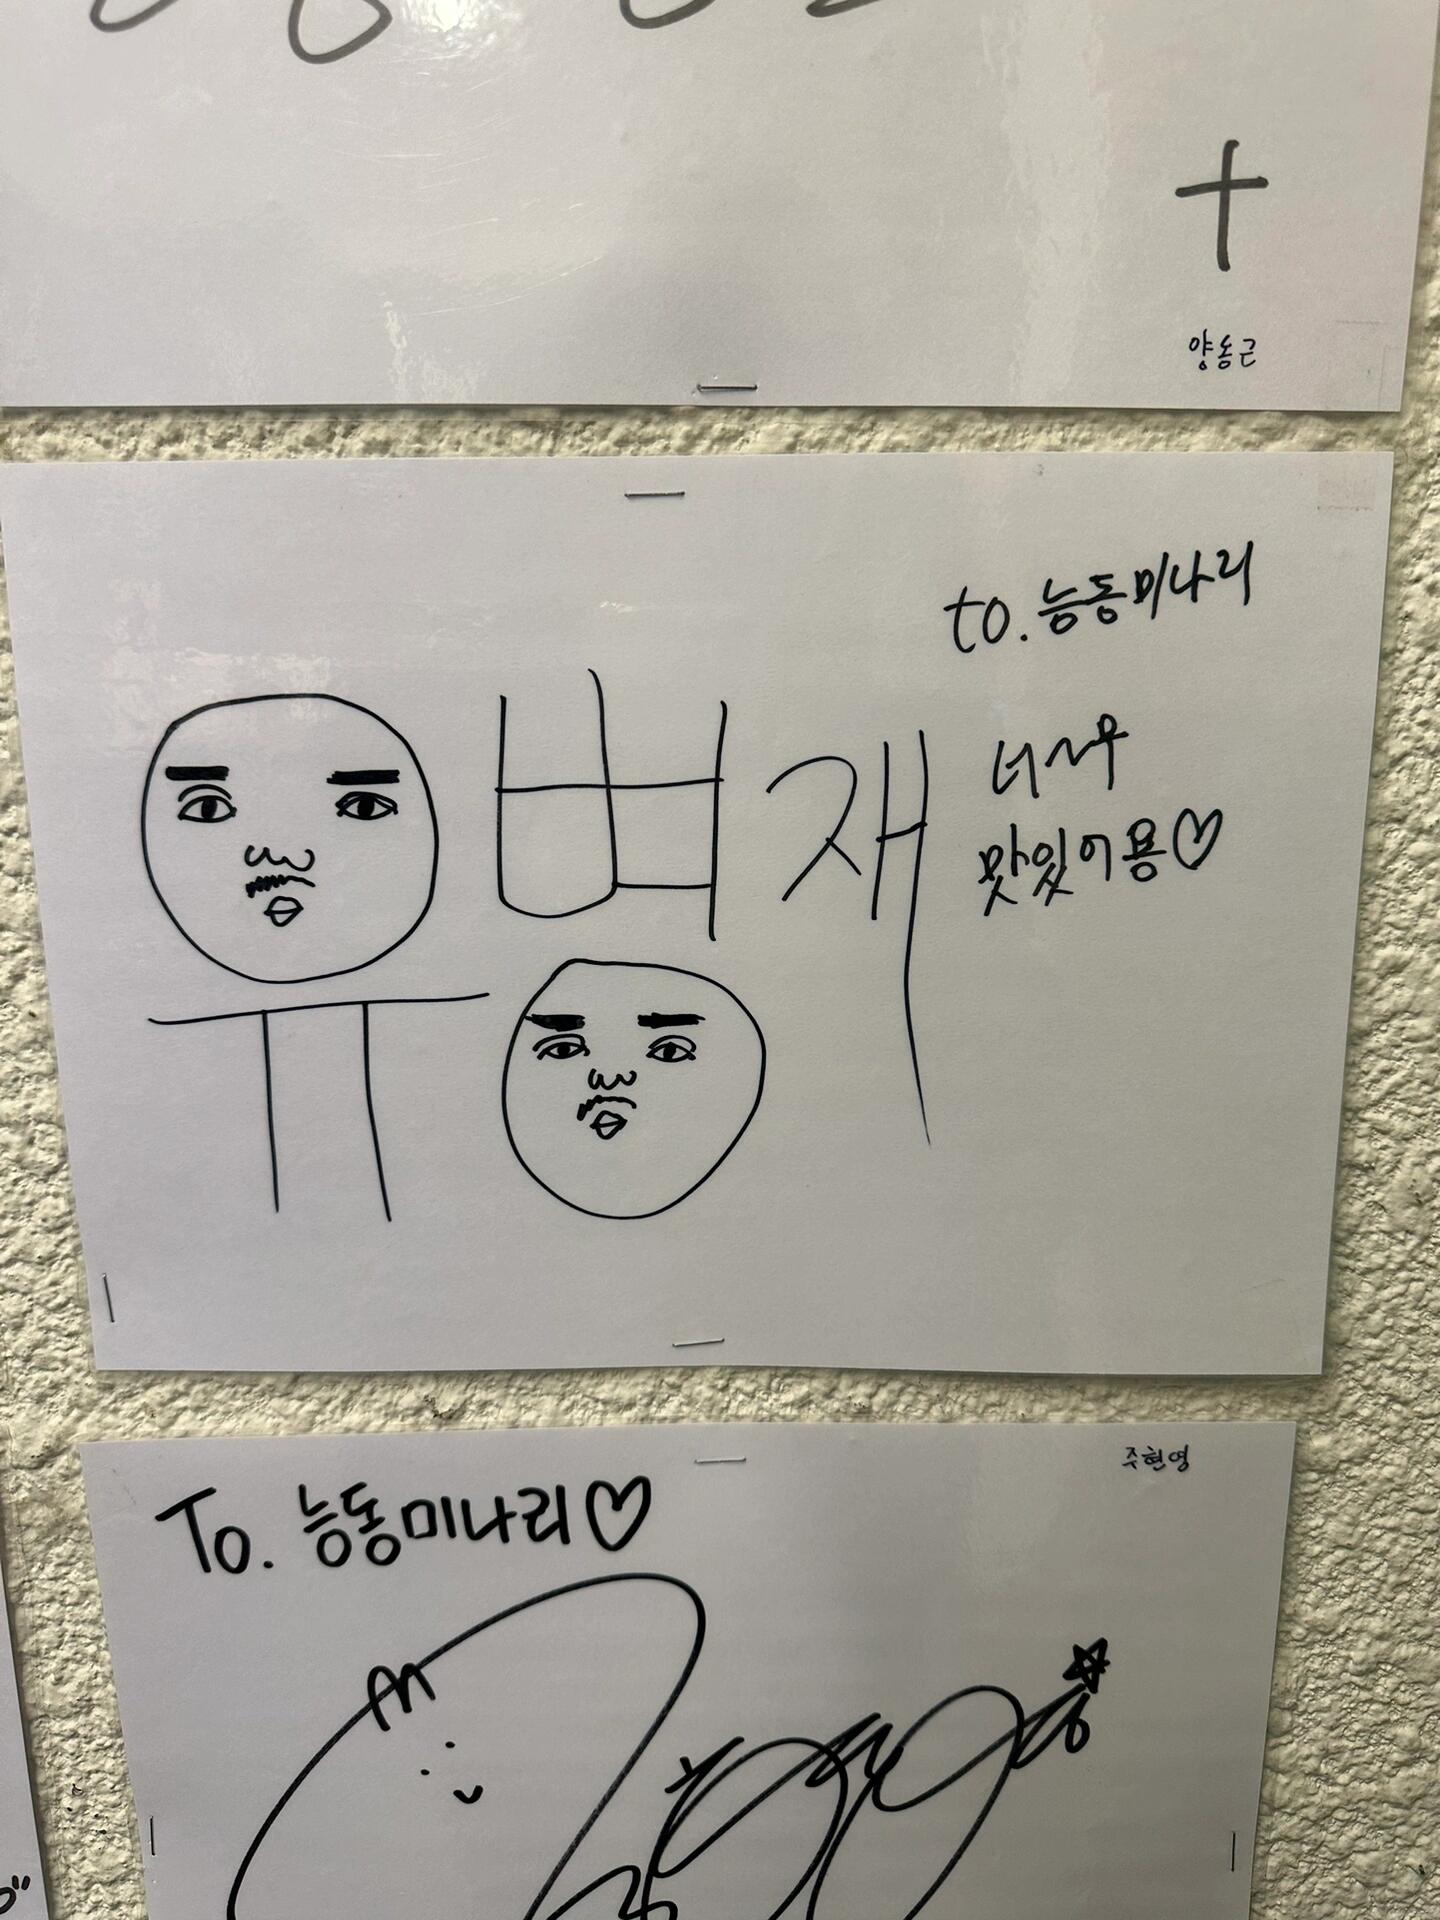 양동근
to. 능동미나리
유병재
너~무
맛있어용♡
주현영
To. 능동미나리♡